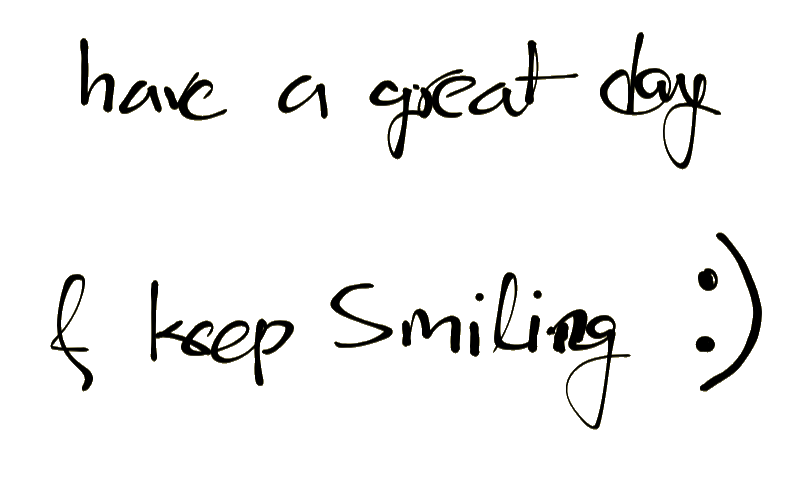 have a great day
& keep Smiling :)